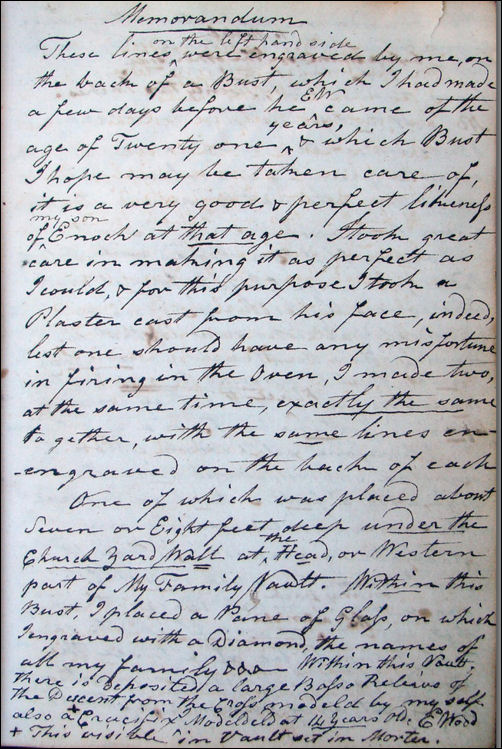 Memorandum
on the left hand side
These lines ^ were engraved by me, on
the back of a Bust, which I had made
EW
a few days before he came of the
years,
age of Twenty one ^ & which Bust
I hope may be taken care of,
it is a very good & perfect likeness
my son
of ^ Enoch at that age. I took great
care in making it as perfect as
I could, & for this purpose I took a
Plaster cast from his face, indeed,
lest one should have any misfortune
in firing in the Oven, I made two,
at the same time, exactly the same
together, with the same lines en-
-engraved on the back of each
One of which was placed about
Seven or Eight feet deep under the
the
Church Yard Wall at ^ Head, or Western
part of My Family Vault. Within this
Bust, I placed a Pane of Glass, on which
I engraved with a Diamond, the names of
all my family &&& Within this Vault,
there is deposited a large Basso Relievo of
the Descent from the Cross modeled by my self
also a + Crucifix Modelded at 14 years old. E Wood
+ This visible in Vault set in Morter.